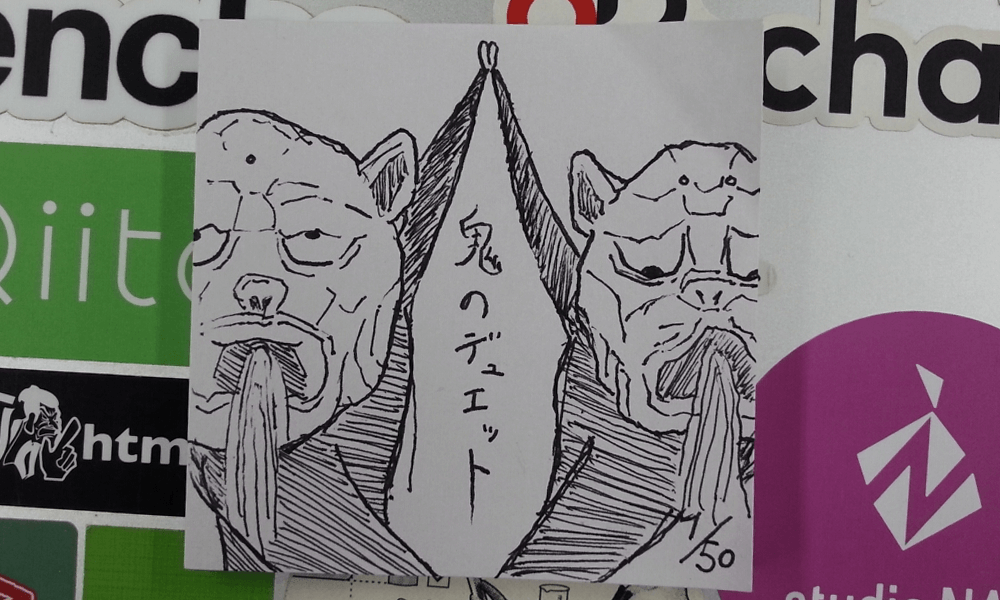 ench
cha
Qiita
htm
鬼のデュエット
/50
studio NA